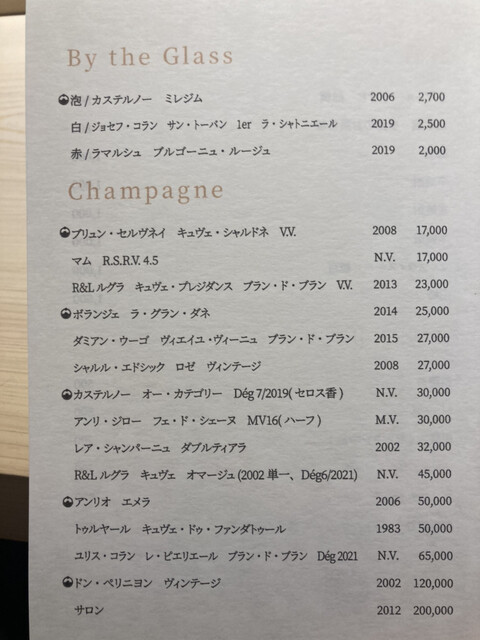 By the Glass
泡 / カステルノー ミレジム 2006 2,700
白 / ジョセフ・コラン サン・トーバン 1er ラ・シャトニエール 2019 2,500
赤 / ラマルシュ ブルゴーニュ・ルージュ 2019 2,000
Champagne
ブリュン・セルヴネイ キュヴェ・シャルドネ V.V. 2008 17,000
マム R.S.R.V. 4.5 N.V. 17,000
R&L ルグラ キュヴェ・プレジダンス ブラン・ド・ブラン V.V. 2013 23,000
ボランジェ ラ・グラン・ダネ 2014 25,000
ダミアン・ウーゴ ヴィエイユ・ヴィーニュ ブラン・ド・ブラン 2015 27,000
シャルル・エドシック ロゼ ヴィンテージ 2008 27,000
カステルノー オー・カテゴリー Dég 7/2019 ( セロス香 ) N.V. 30,000
アンリ・ジロー フュ・ド・シェーヌ MV16( ハーフ ) M.V. 30,000
レア・シャンパーニュ ダブルティアラ 2002 32,000
R&L ルグラ キュヴェ オマージュ (2002 単一、Dég6/2021) N.V. 45,000
アンリオ エメラ 2006 50,000
トゥルヤール キュヴェ・ドゥ・ファンダトゥール 1983 50,000
ユリス・コラン レ・ピエリエール ブラン・ド・ブラン Dég 2021 N.V. 65,000
ドン・ペリニヨン ヴィンテージ 2002 120,000
サロン 2012 200,000